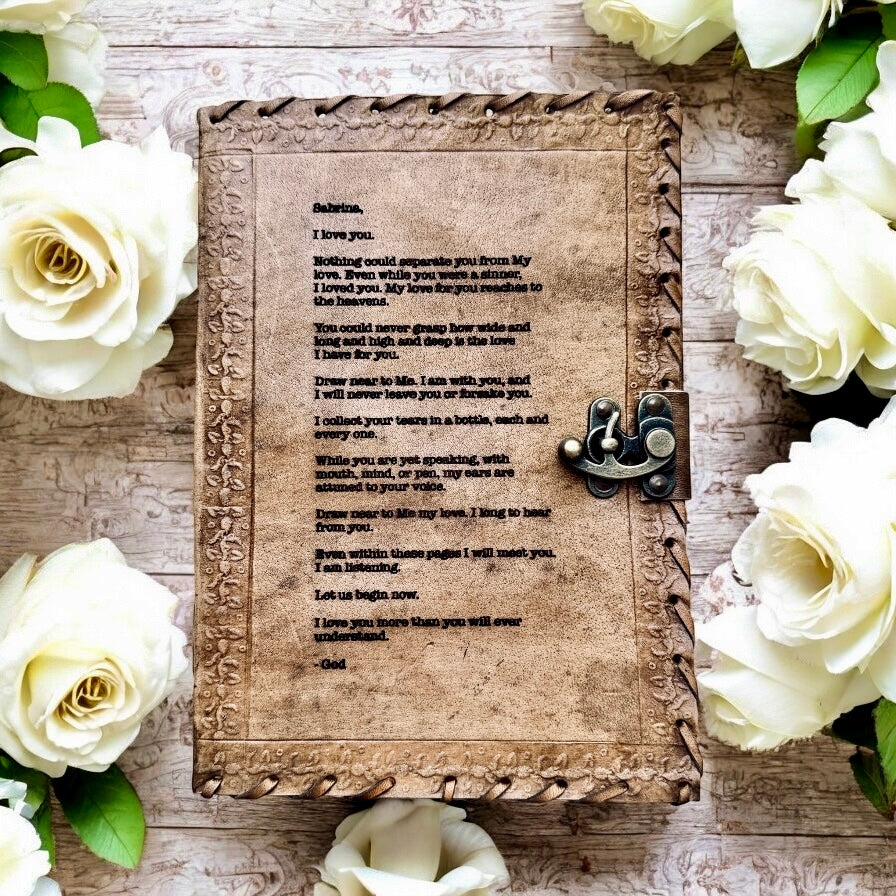 Sabrina,
I love you.
Nothing could separate you from My
love. Even while you were a sinner,
I loved you. My love for you reaches to
the heavens.
You could never grasp how wide and
long and high and deep is the love
I have for you.
Draw near to Me. I am with you, and
I will never leave you or forsake you.
I collect your tears in a bottle, each and
every one.
While you are yet speaking, with
mouth, mind, or pen, my ears are
attuned to your voice.
Draw near to Me my love. I long to hear
from you.
Even within these pages I will meet you.
I am listening.
Let us begin now.
I love you more than you will ever
understand.
- God